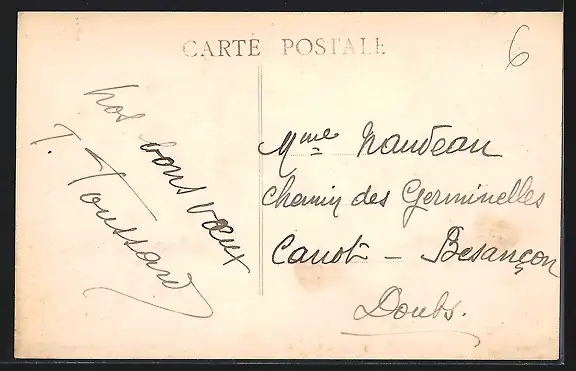 CARTE POSTALE
6
nos bons vœux
T. Toussard
Mme Naudeau
Chemin des Germinelles
Canot - Besançon
Doubs.